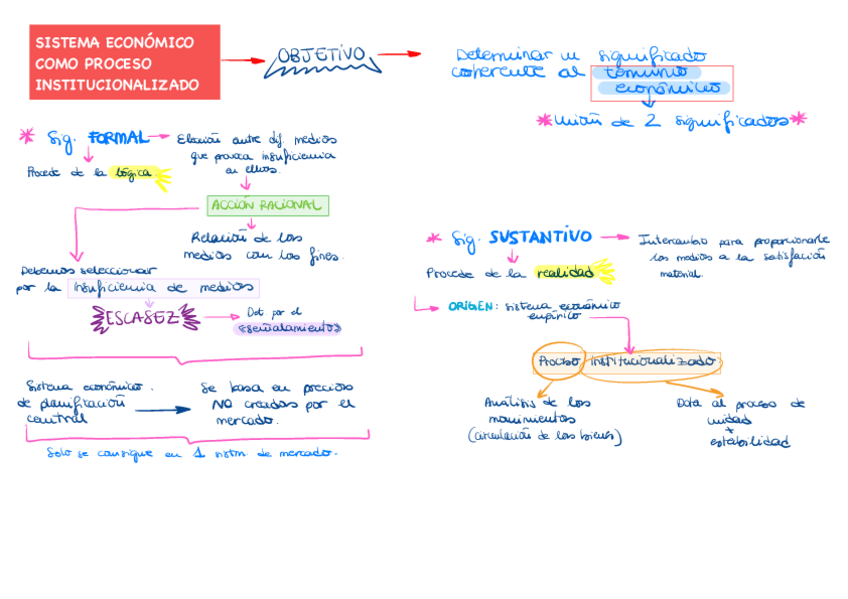 SISTEMA ECONÓMICO
COMO PROCESO
INSTITUCIONALIZADO
OBJETIVO
Determinar un significado
coherente al término
económico
*Unión de 2 significados*
* Sig. FORMAL
Elección entre dif. medios
que provoca insuficiencia
en ellos.
Procede de la lógica.
ACCIÓN RACIONAL
Relación de los
medios con los fines.
Debemos seleccionar
por la insuficiencia de medios
ESCASEZ
Det por el
<señalamiento>
Sistema económico
de planificación
central
Se basa en precios
NO creados por el
mercado.
Solo se consigue en 1 sistm. de mercado.
* Sig. SUSTANTIVO
Intercambio para proporcionarle
los medios a la satisfacción
material.
Procede de la realidad
ORIGEN: sistema económico
empírico
Proceso institucionalizado
Análisis de los
movimientos
(circulación de los bienes)
Dota al proceso de
unidad
+
estabilidad